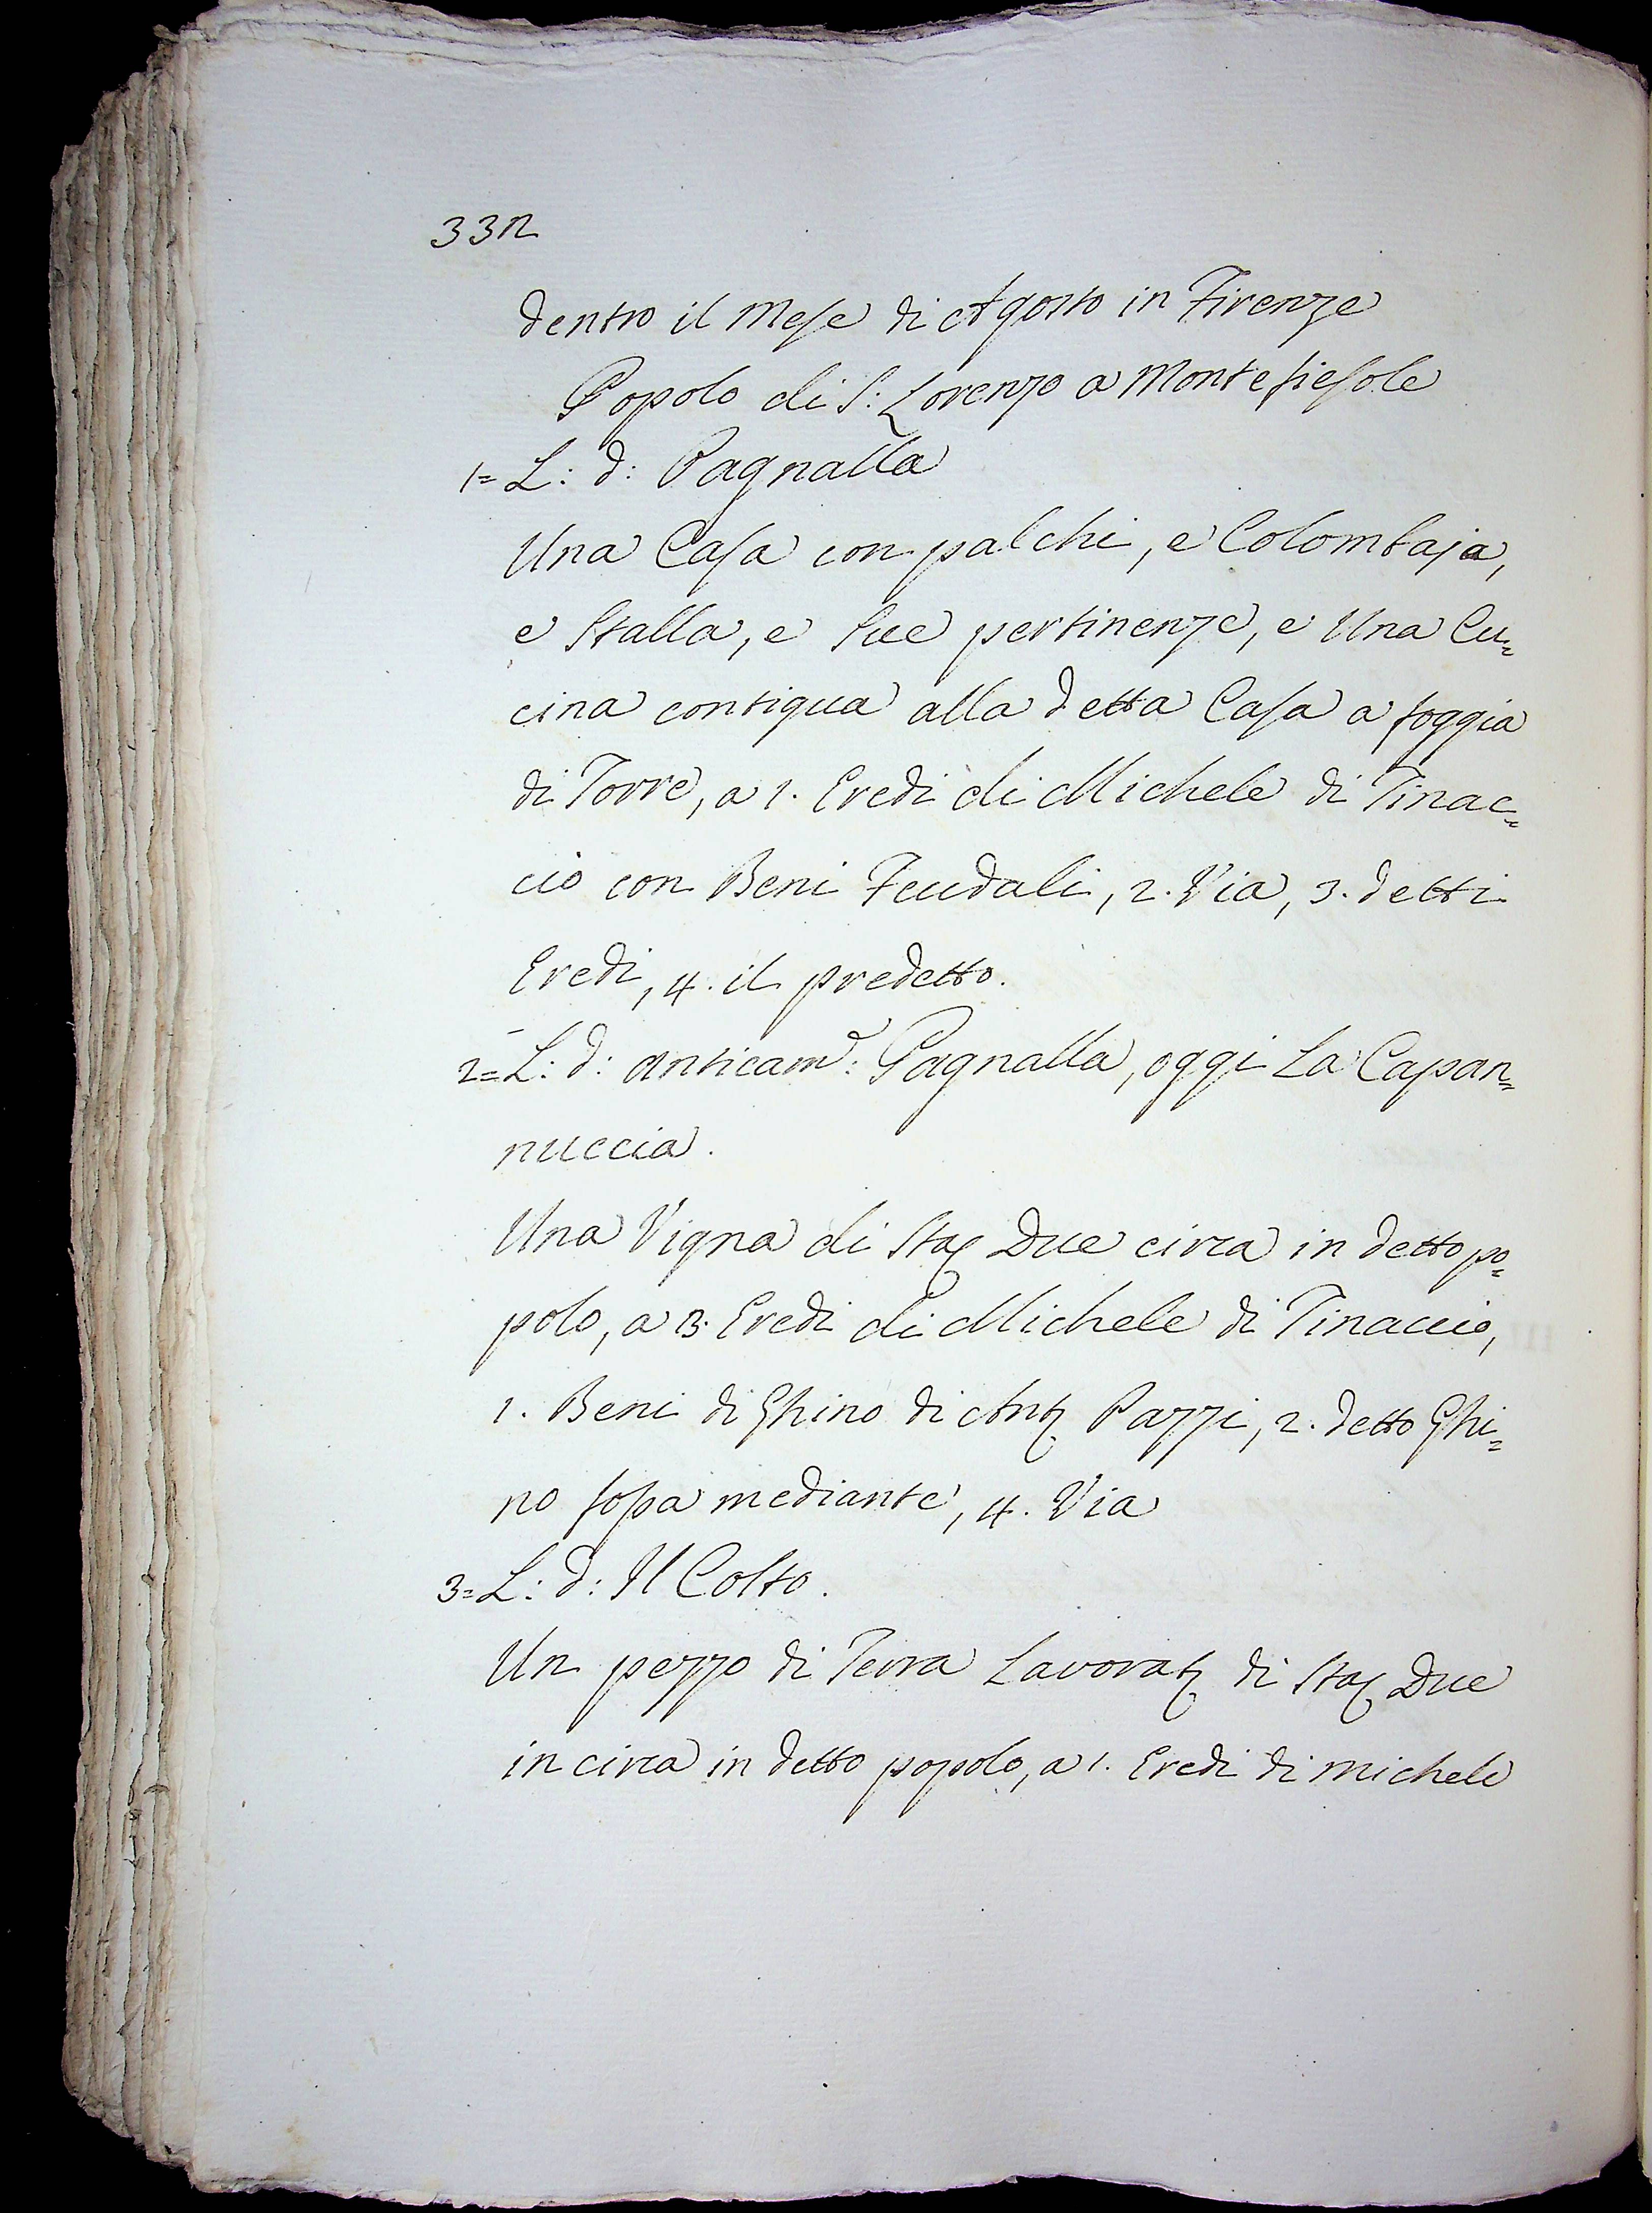 332
dentro il Mese di Agosto in Firenze
Popolo di S: Lorenzo a Montefiesole
1= L: d: Pagnalla
Una Casa con palchi, e Colombaja,
e Stalla, e Sue pertinenze, e Una Cu=
cina contigua alla detta Casa a foggia
di Torre, a 1. Eredi di Michele di Tinac=
cio con Beni Feudali, 2. Via, 3. detti
Eredi, 4. il predetto.
2= L: d: anticam.e: Pagnalla, oggi La Capan=
nuccia.
Una Vigna di Sta; Due circa in detto po=
polo, a 3. Eredi di Michele di Tinaccio,
1. Beni di Ghino di Ant; Pazzi, 2. detto Ghi=
no fossa mediante, 4. Via
3= L: d: Il Colto.
Un pezzo di Terra Lavorat; di Sta; Due
in circa in detto popolo, a 1. Eredi di Michele